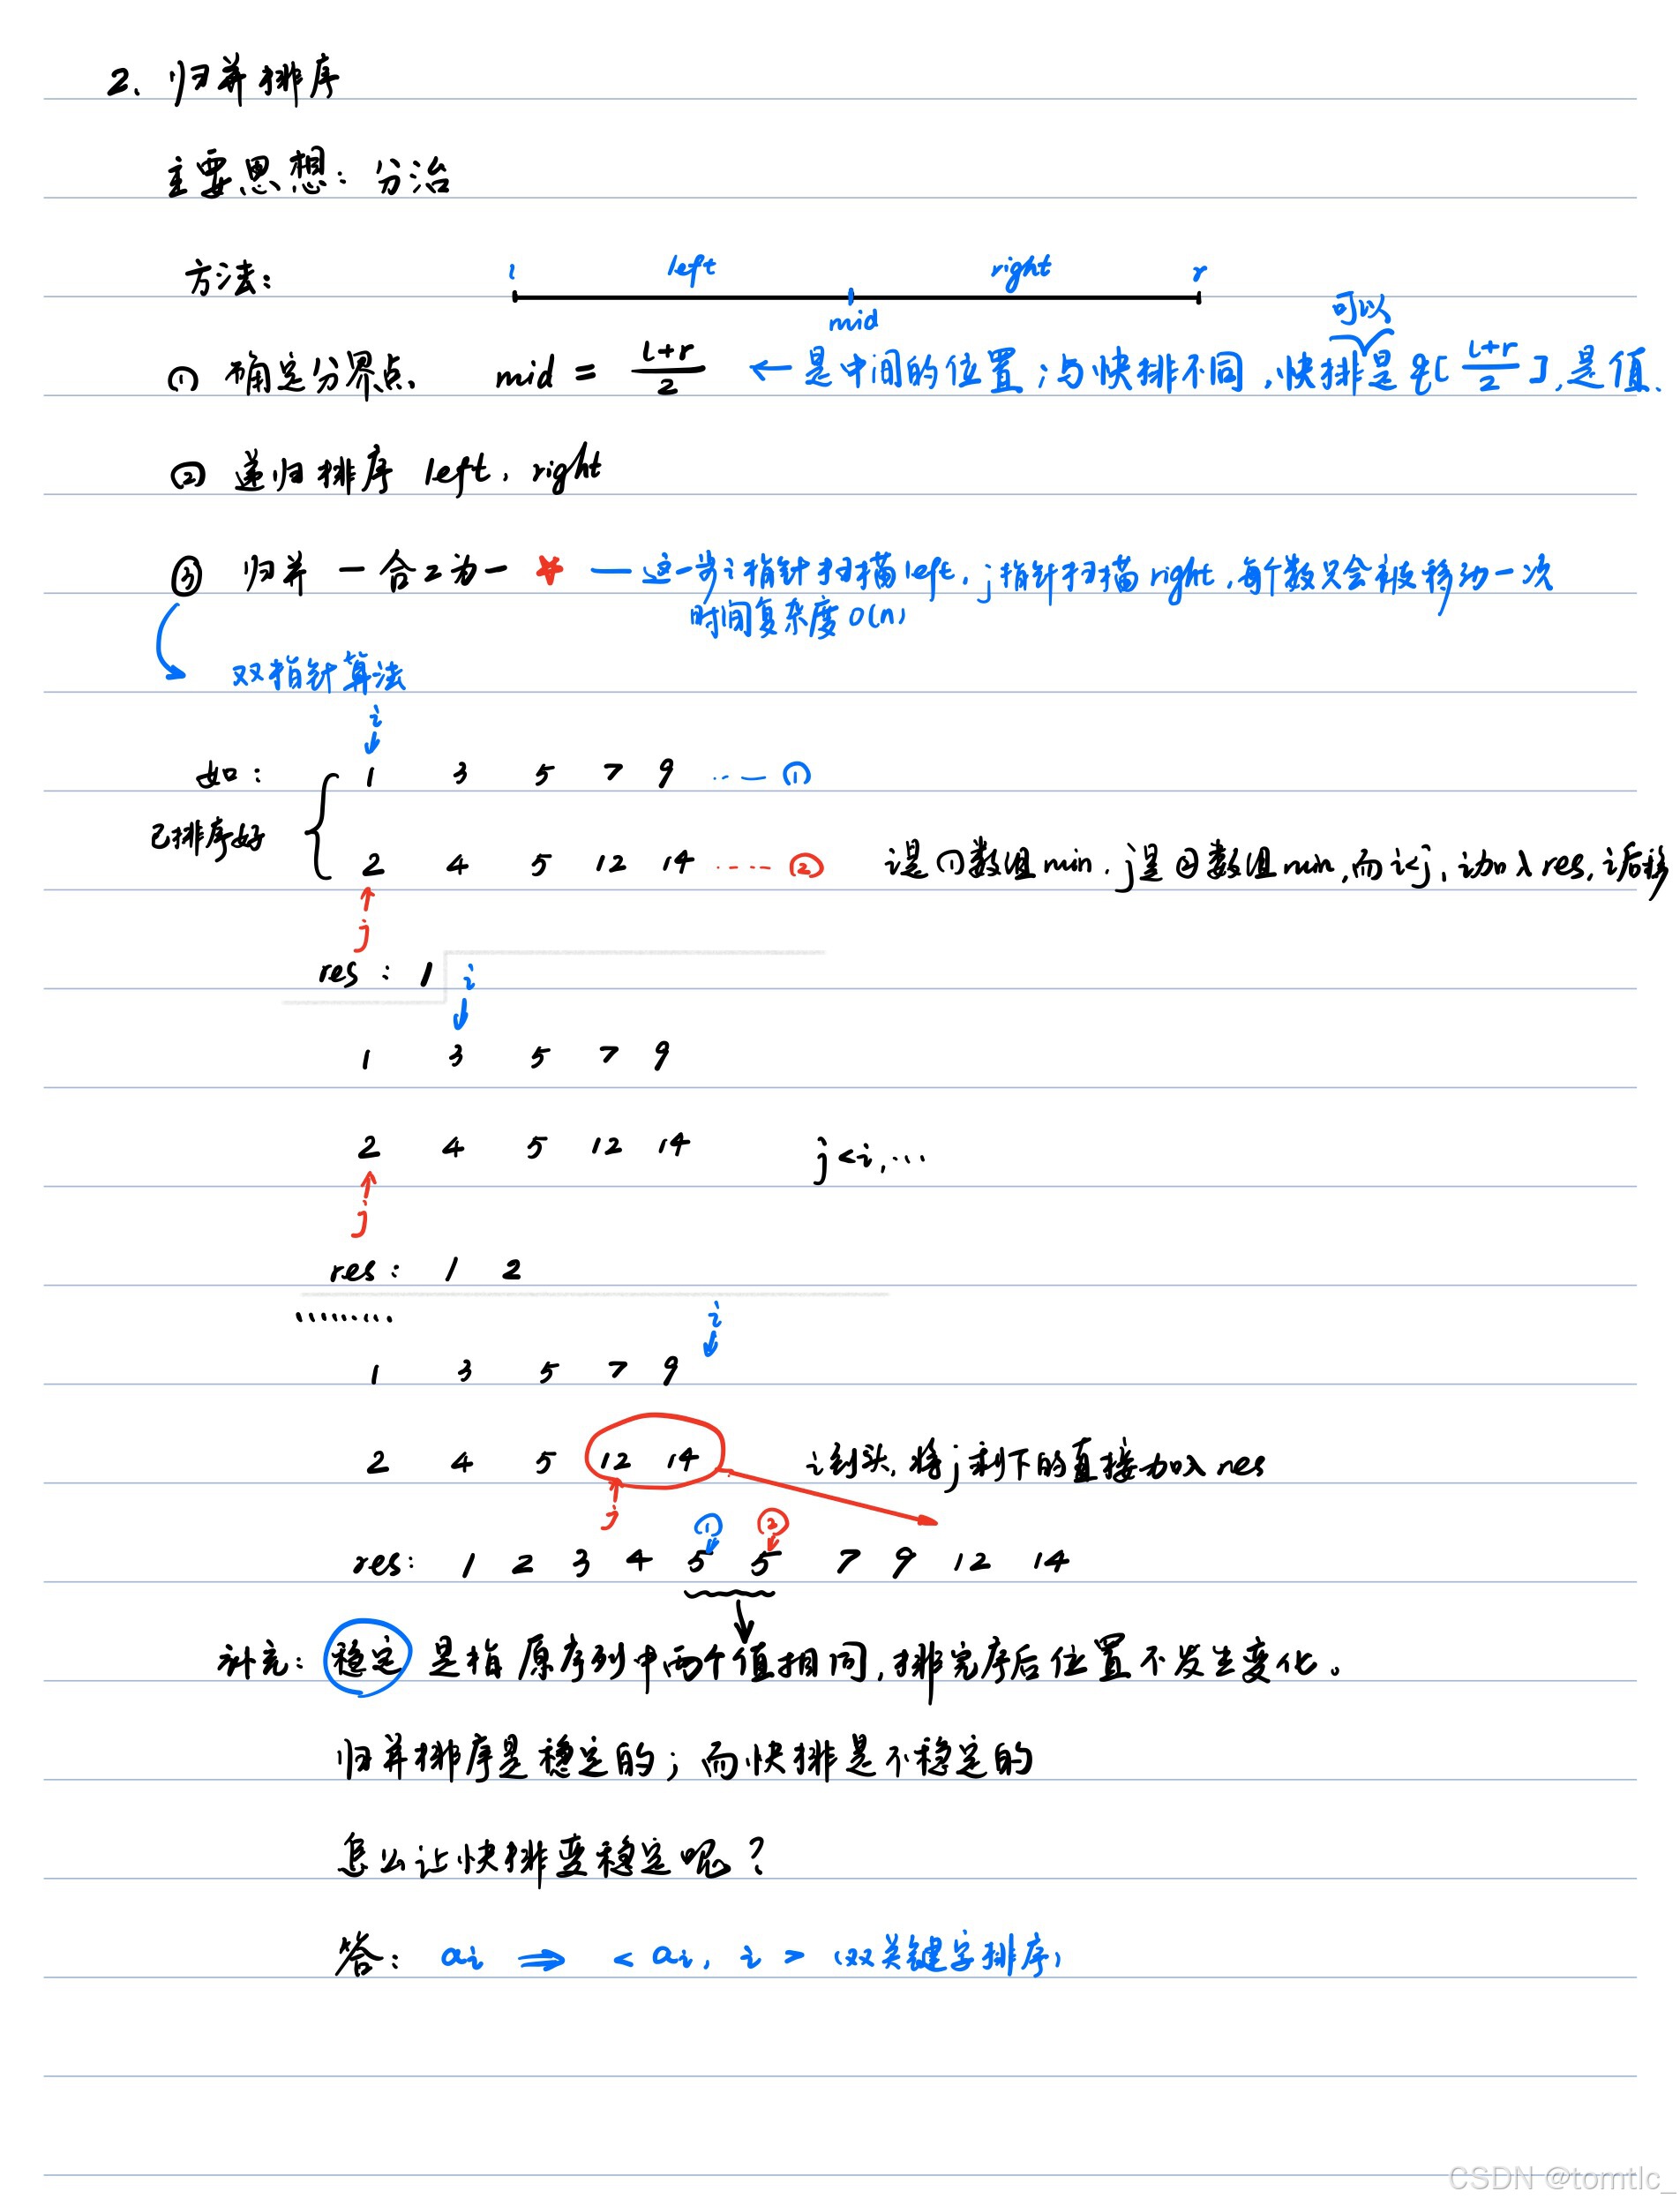 2. 归并排序
主要思想：分治
方法：
l left right r
mid
可以
① 确定分界点. mid = (l+r)/2 ← 是中间的位置；与快排不同，快排是q[(l+r)/2], 是值.
② 递归排序 left, right
③ 归并 — 合2为一 — 这一步i指针扫描left, j指针扫描right, 每个数只会被移动一次
时间复杂度O(n)
双指针算法
i
如： 1 3 5 7 9 ①
已排序好
2 4 5 12 14 ...... ② i是①数组min, j是②数组min, 而i<j, i加入res, i后移
j
res: 1 i
1 3 5 7 9
2 4 5 12 14 j<i, ...
j
res: 1 2
.........
i
1 3 5 7 9
2 4 5 12 14 i到头, 将j剩下的直接加入res
j
① ②
res: 1 2 3 4 5 5 7 9 12 14
补充: 稳定 是指原序列中两个值相同, 排完序后位置不发生变化。
归并排序是稳定的；而快排是不稳定的
怎么让快排变稳定呢?
答: ai ⇒ <ai, i> (双关键字排序)
CSDN @tomtlc_